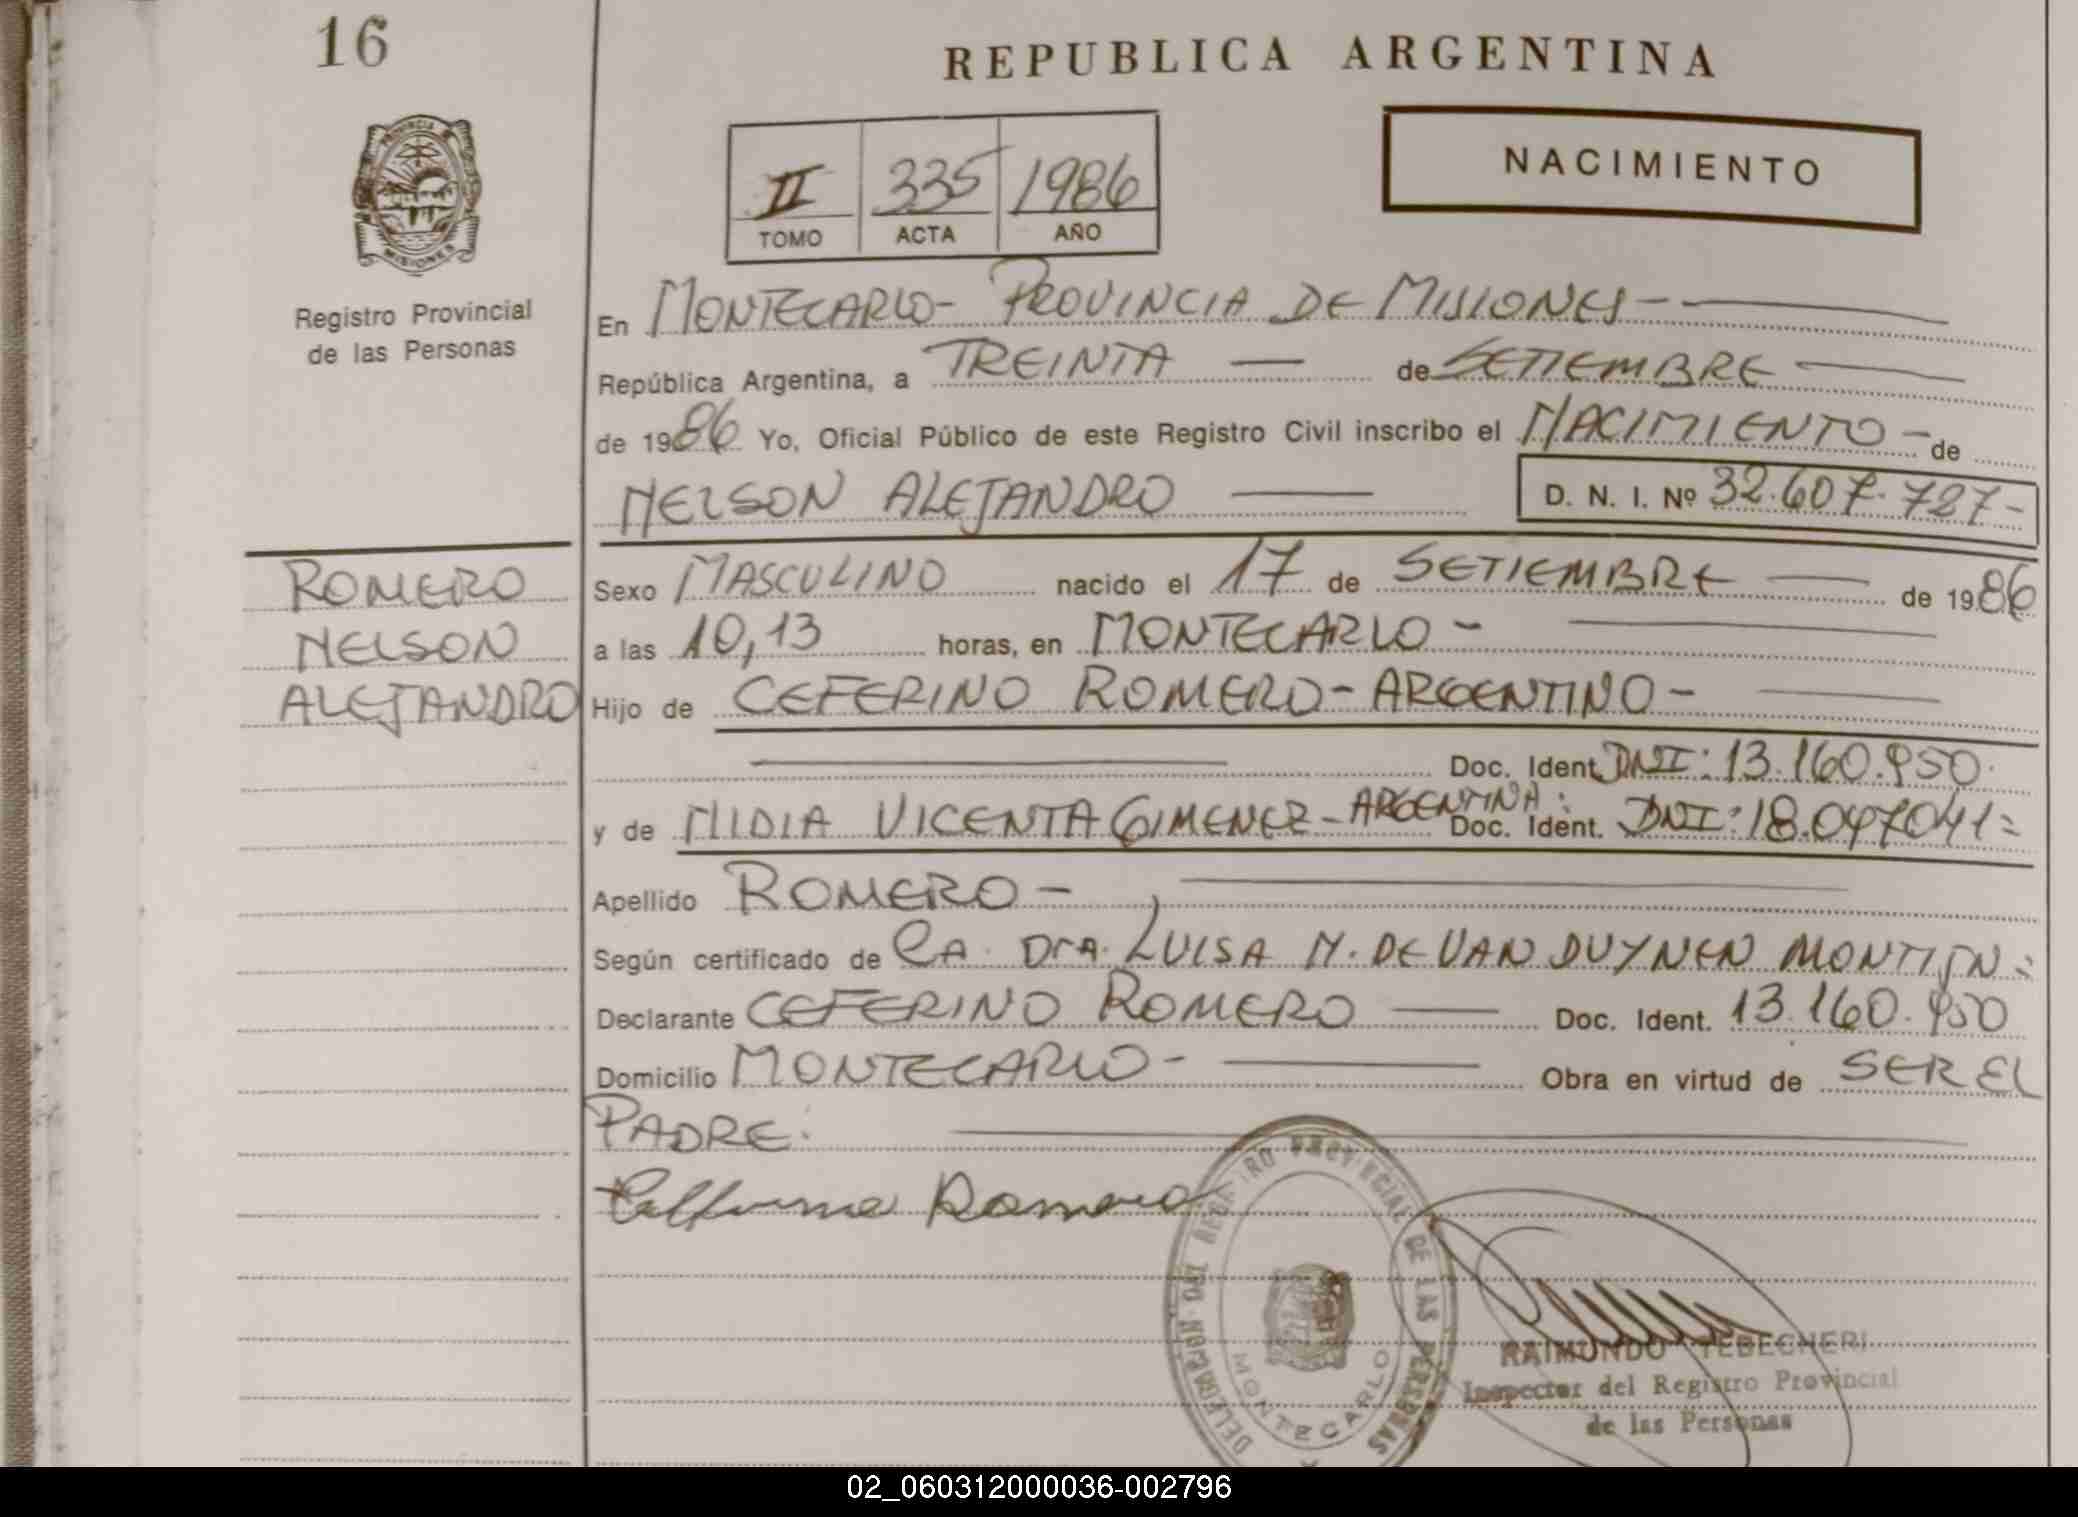 16
REPUBLICA ARGENTINA
PROVINCIA
MISIONES
Registro Provincial
de las Personas
II 335 1986
TOMO ACTA AÑO
NACIMIENTO
En MONTECARLO- PROVINCIA DE MISIONES-
República Argentina, a TREINTA — de SETIEMBRE —
de 1986 Yo, Oficial Público de este Registro Civil inscribo el NACIMIENTO - de
NELSON ALEJANDRO — D. N. I. Nº 32.607.727-
ROMERO
NELSON
ALEJANDRO
Sexo MASCULINO nacido el 17 de SETIEMBRE — de 1986
a las 10,13 horas, en MONTECARLO -
Hijo de CEFERINO ROMERO- ARGENTINO -
Doc. Ident. DNI: 13.160.950.
y de NIDIA VICENTA GIMENEZ - ARGENTINA: Doc. Ident. DNI: 18.047041=
Apellido ROMERO -
Según certificado de LA. Dra. LUISA M. DE VAN DUYNEN
Declarante CEFERINO ROMERO — Doc. Ident. 13.160.950
Domicilio MONTECARLO - Obra en virtud de SER EL
PADRE.
Romero
DEL REGISTRO PROVINCIAL DE LAS PERSONAS
MONTECARLO
RAIMUNDO TEBECHERI
Inspector del Registro Provincial
de las Personas
02_060312000036-002796